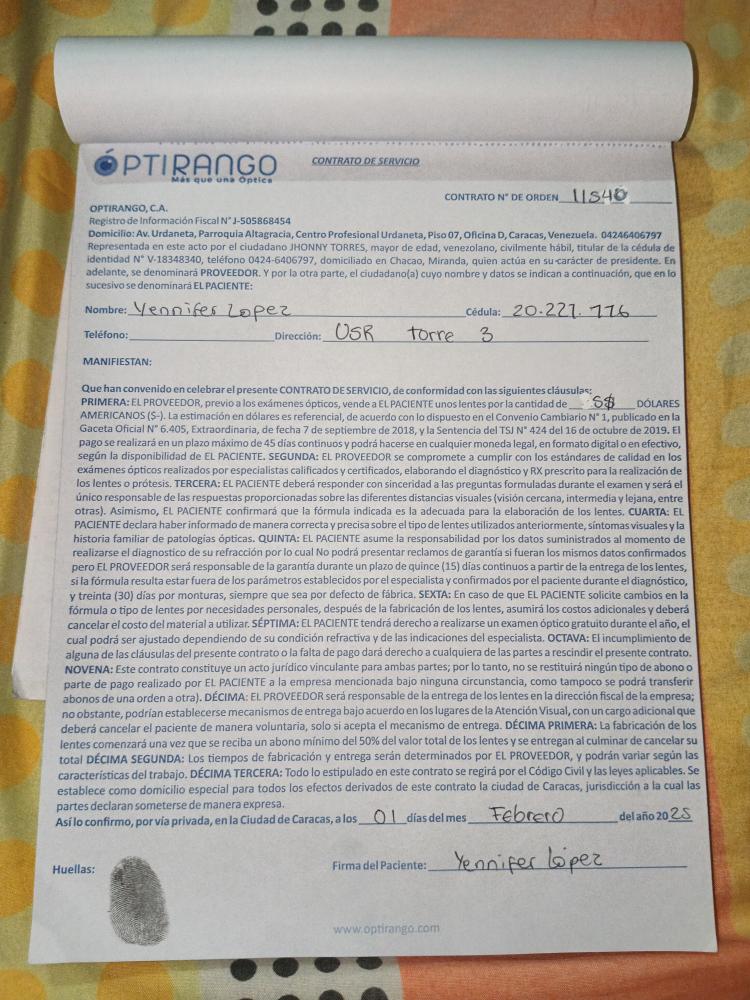 OPTIRANGO
Más que una Óptica
CONTRATO DE SERVICIO
CONTRATO N° DE ORDEN 11540
OPTIRANGO, C.A.
Registro de Información Fiscal N° J-505868454
Domicilio: Av. Urdaneta, Parroquia Altagracia, Centro Profesional Urdaneta, Piso 07, Oficina D, Caracas, Venezuela. 04246406797
Representada en este acto por el ciudadano JHONNY TORRES, mayor de edad, venezolano, civilmente hábil, titular de la cédula de
identidad N° V-18348340, teléfono 0424-6406797, domiciliado en Chacao, Miranda, quien actúa en su carácter de presidente. En
adelante, se denominará PROVEEDOR. Y por la otra parte, el ciudadano(a) cuyo nombre y datos se indican a continuación, que en lo
sucesivo se denominará EL PACIENTE:
Nombre: Yennifer Lopez Cédula: 20.227.776
Teléfono: Dirección: USR torre 3
MANIFIESTAN:
Que han convenido en celebrar el presente CONTRATO DE SERVICIO, de conformidad con las siguientes cláusulas:
PRIMERA: EL PROVEEDOR, previo a los exámenes ópticos, vende a EL PACIENTE unos lentes por la cantidad de 55$ DÓLARES
AMERICANOS ($-). La estimación en dólares es referencial, de acuerdo con lo dispuesto en el Convenio Cambiario N° 1, publicado en la
Gaceta Oficial N° 6.405, Extraordinaria, de fecha 7 de septiembre de 2018, y la Sentencia del TSJ N° 424 del 16 de octubre de 2019. El
pago se realizará en un plazo máximo de 45 días continuos y podrá hacerse en cualquier moneda legal, en formato digital o en efectivo,
según la disponibilidad de EL PACIENTE. SEGUNDA: EL PROVEEDOR se compromete a cumplir con los estándares de calidad en los
exámenes ópticos realizados por especialistas calificados y certificados, elaborando el diagnóstico y RX prescrito para la realización de
los lentes o prótesis. TERCERA: EL PACIENTE deberá responder con sinceridad a las preguntas formuladas durante el examen y será el
único responsable de las respuestas proporcionadas sobre las diferentes distancias visuales (visión cercana, intermedia y lejana, entre
otras). Asimismo, EL PACIENTE confirmará que la fórmula indicada es la adecuada para la elaboración de los lentes. CUARTA: EL
PACIENTE declara haber informado de manera correcta y precisa sobre el tipo de lentes utilizados anteriormente, síntomas visuales y la
historia familiar de patologías ópticas. QUINTA: EL PACIENTE asume la responsabilidad por los datos suministrados al momento de
realizarse el diagnostico de su refracción por lo cual No podrá presentar reclamos de garantía si fueran los mismos datos confirmados
pero EL PROVEEDOR será responsable de la garantía durante un plazo de quince (15) días continuos a partir de la entrega de los lentes,
si la fórmula resulta estar fuera de los parámetros establecidos por el especialista y confirmados por el paciente durante el diagnóstico,
y treinta (30) días por monturas, siempre que sea por defecto de fábrica. SEXTA: En caso de que EL PACIENTE solicite cambios en la
fórmula o tipo de lentes por necesidades personales, después de la fabricación de los lentes, asumirá los costos adicionales y deberá
cancelar el costo del material a utilizar. SÉPTIMA: EL PACIENTE tendrá derecho a realizarse un examen óptico gratuito durante el año, el
cual podrá ser ajustado dependiendo de su condición refractiva y de las indicaciones del especialista. OCTAVA: El incumplimiento de
alguna de las cláusulas del presente contrato o la falta de pago dará derecho a cualquiera de las partes a rescindir el presente contrato.
NOVENA: Este contrato constituye un acto jurídico vinculante para ambas partes; por lo tanto, no se restituirá ningún tipo de abono o
parte de pago realizado por EL PACIENTE a la empresa mencionada bajo ninguna circunstancia, como tampoco se podrá transferir
abonos de una orden a otra). DÉCIMA: EL PROVEEDOR será responsable de la entrega de los lentes en la dirección fiscal de la empresa;
no obstante, podrían establecerse mecanismos de entrega bajo acuerdo en los lugares de la Atención Visual, con un cargo adicional que
deberá cancelar el paciente de manera voluntaria, solo si acepta el mecanismo de entrega. DÉCIMA PRIMERA: La fabricación de los
lentes comenzará una vez que se reciba un abono mínimo del 50% del valor total de los lentes y se entregan al culminar de cancelar su
total DÉCIMA SEGUNDA: Los tiempos de fabricación y entrega serán determinados por EL PROVEEDOR, y podrán variar según las
características del trabajo. DÉCIMA TERCERA: Todo lo estipulado en este contrato se regirá por el Código Civil y las leyes aplicables. Se
establece como domicilio especial para todos los efectos derivados de este contrato la ciudad de Caracas, jurisdicción a la cual las
partes declaran someterse de manera expresa.
Así lo confirmo, por vía privada, en la Ciudad de Caracas, a los 01 días del mes Febrero del año 2025
Huellas: Firma del Paciente: Yennifer López
www.optirango.com